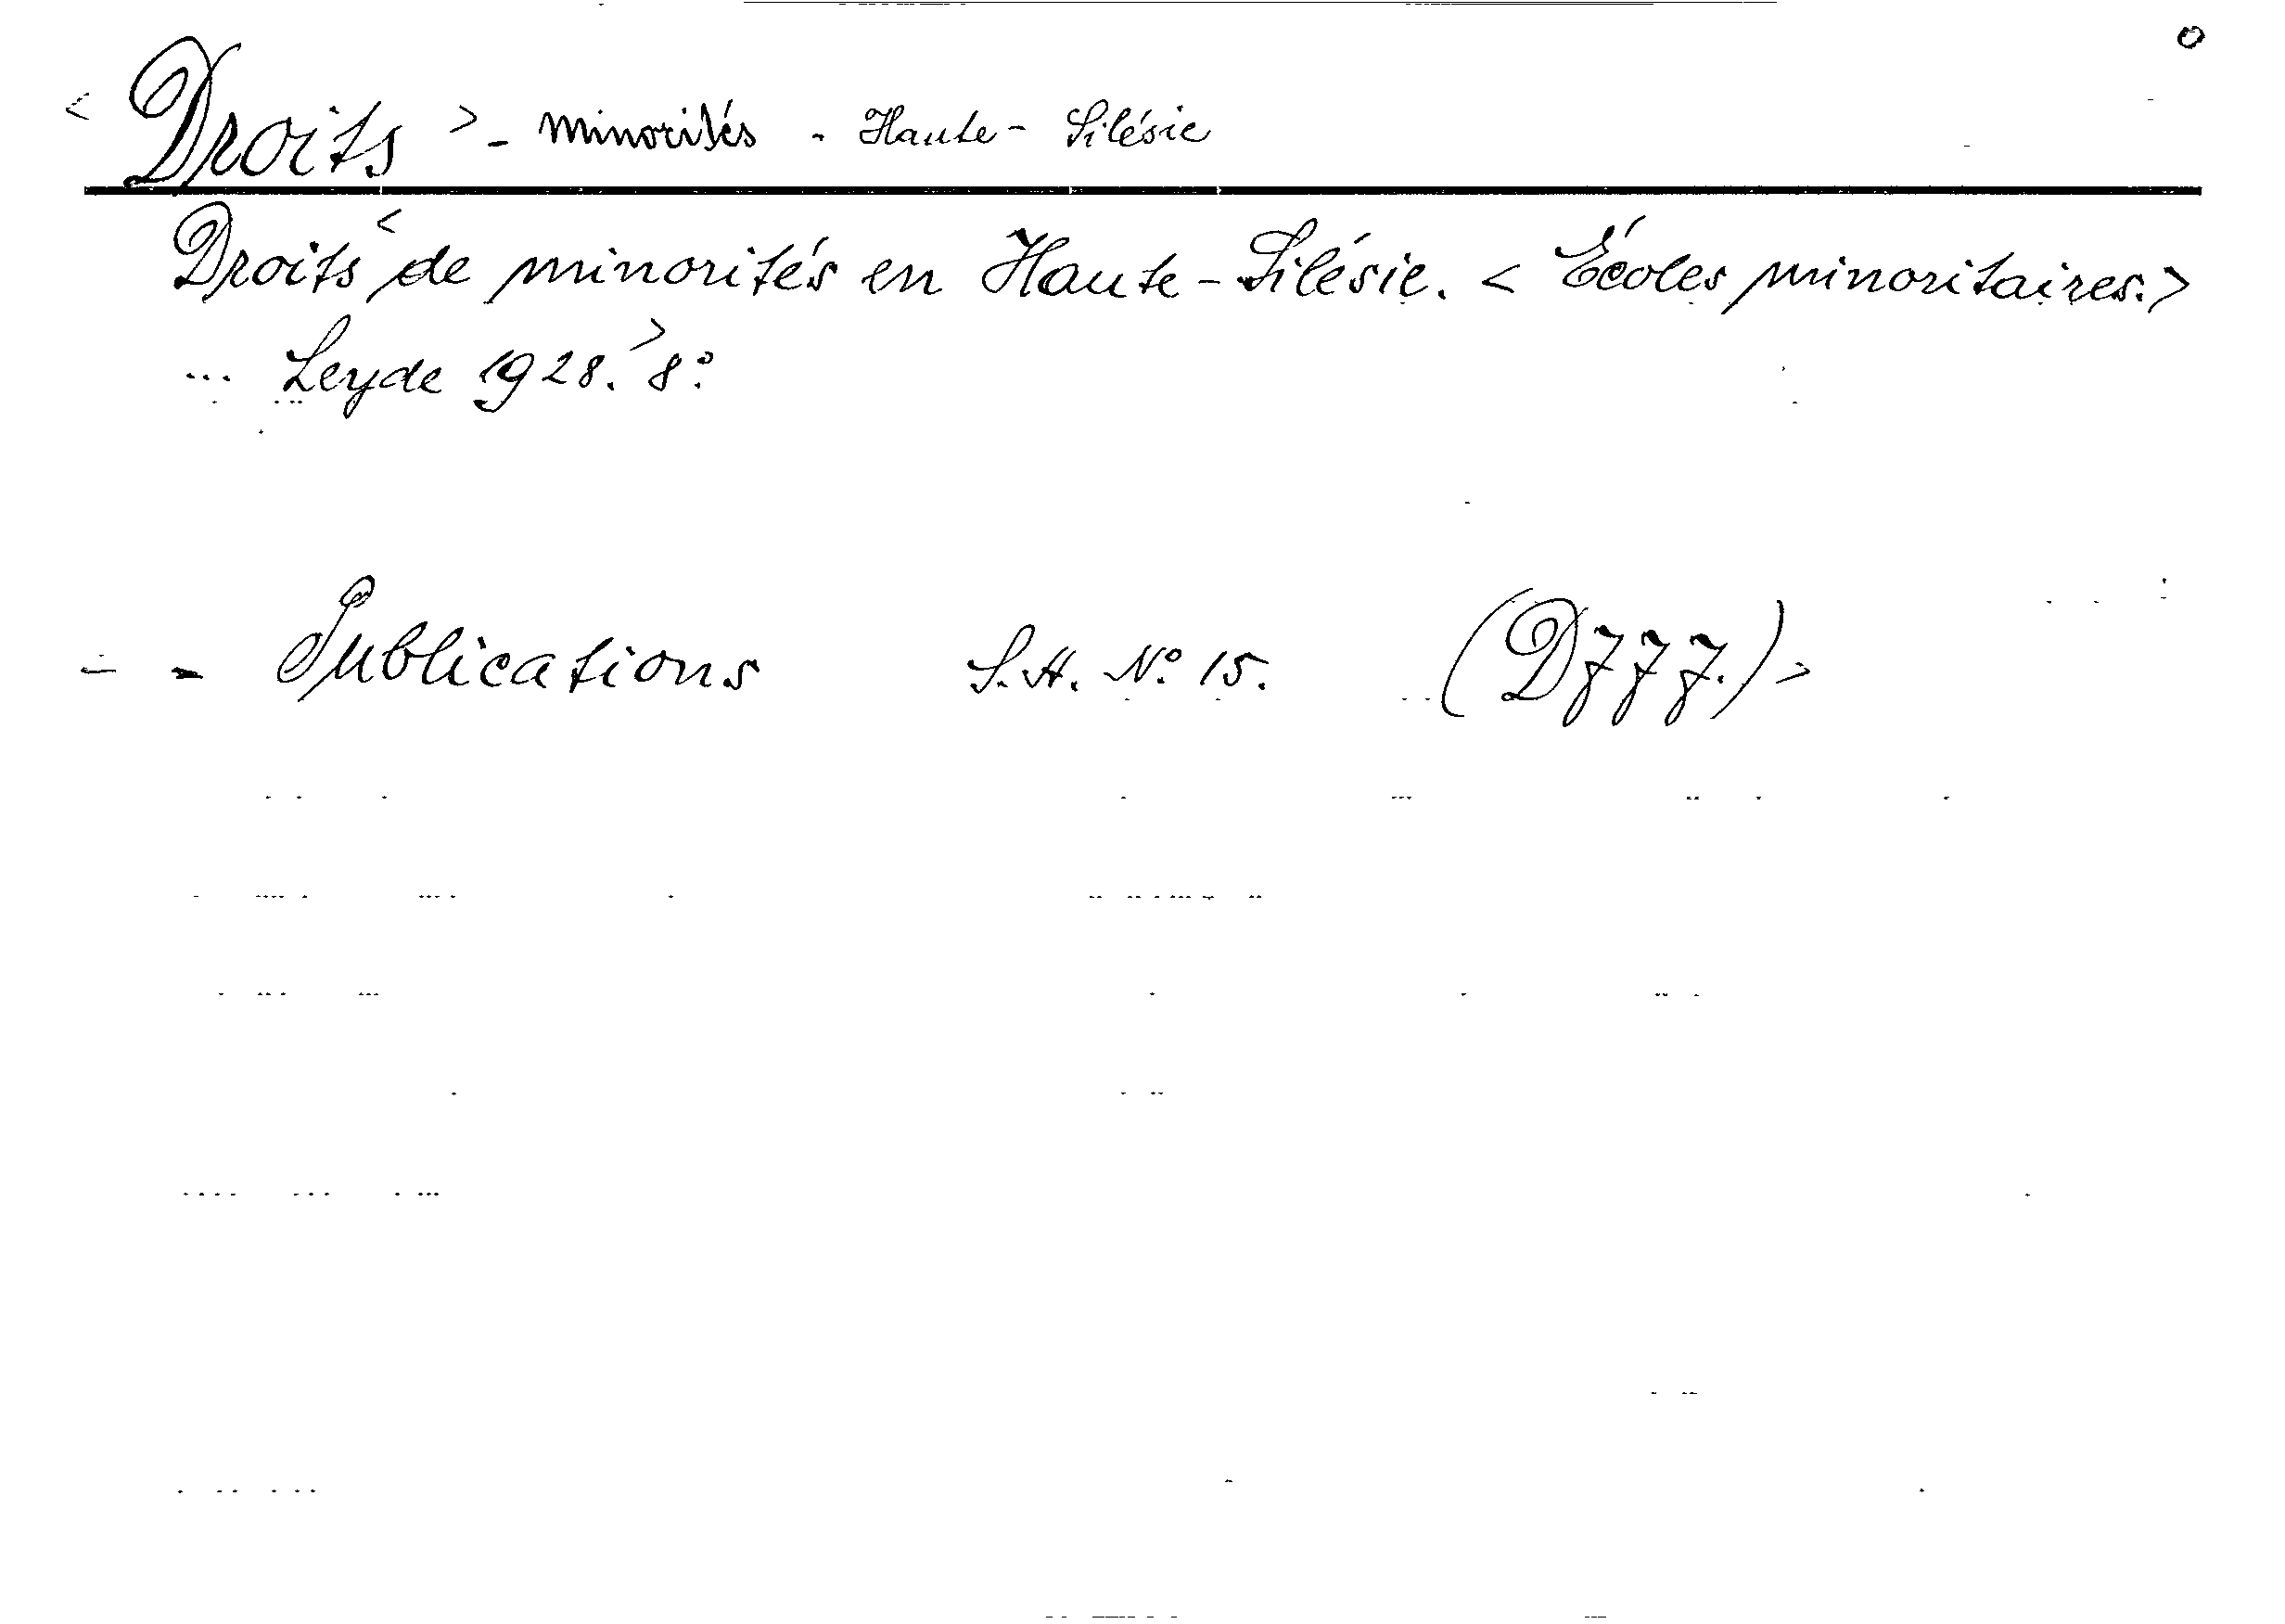 < Droits > - minorités - Haute-Silésie
Droits < de minorités en Haute-Silésie. < Écoles minoritaires. >
... Leyde 1928. > 8°
- - Publications S.A. N° 15. (D777.) >